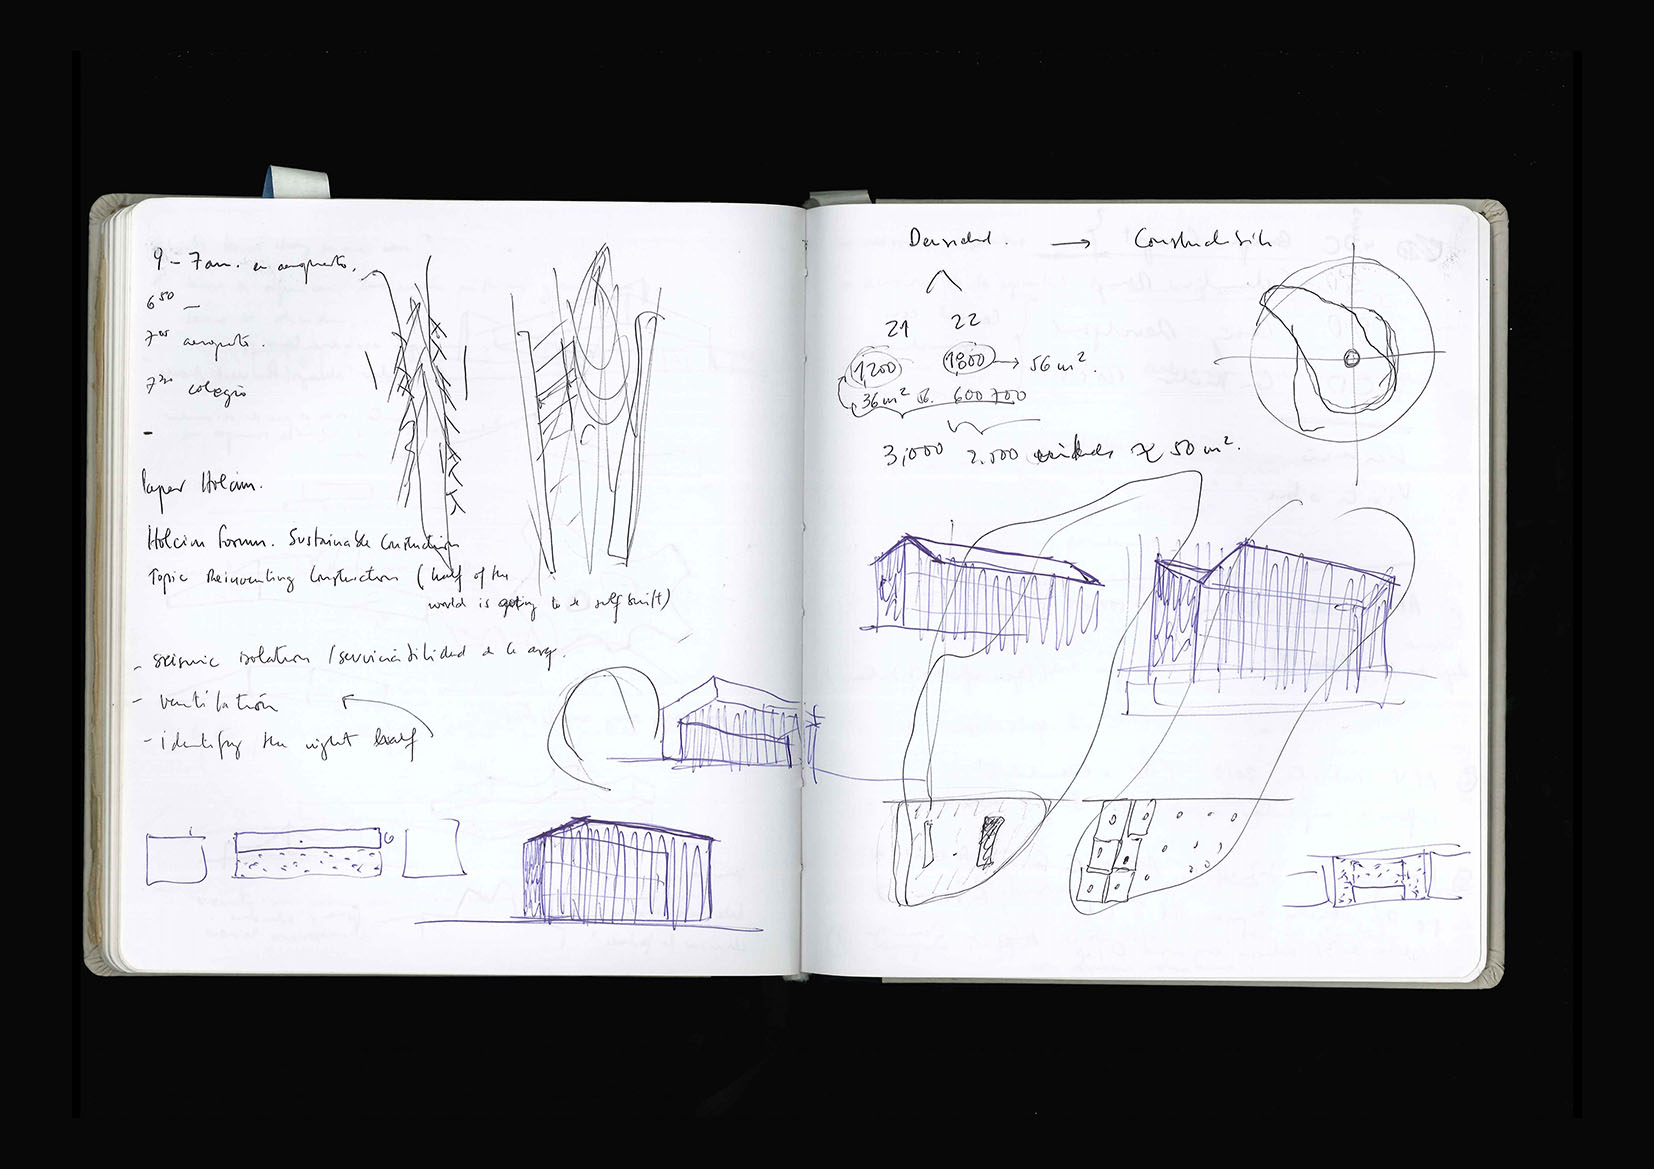 9 – 7 am. en aeropuerto.
6⁵⁰ –
7⁰⁵ aeropuerto.
colegio
-
paper Holcim.
Holcim forum. Sustainable Construction
Topic Reinventing Construction (half of the
world is going to be self built)
- seismic isolation / serviciabilidad de la arq.
- ventilación
- identify the right half
Densidad. →
21 22
1200 1800 → 56 m².
36 m² 600 700
3,000 2.500 unidades ≈ 50 m².